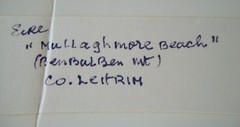 Eire
"Mullaghmore Beach"
(BenBulBen Mt)
Co. LEITRIM